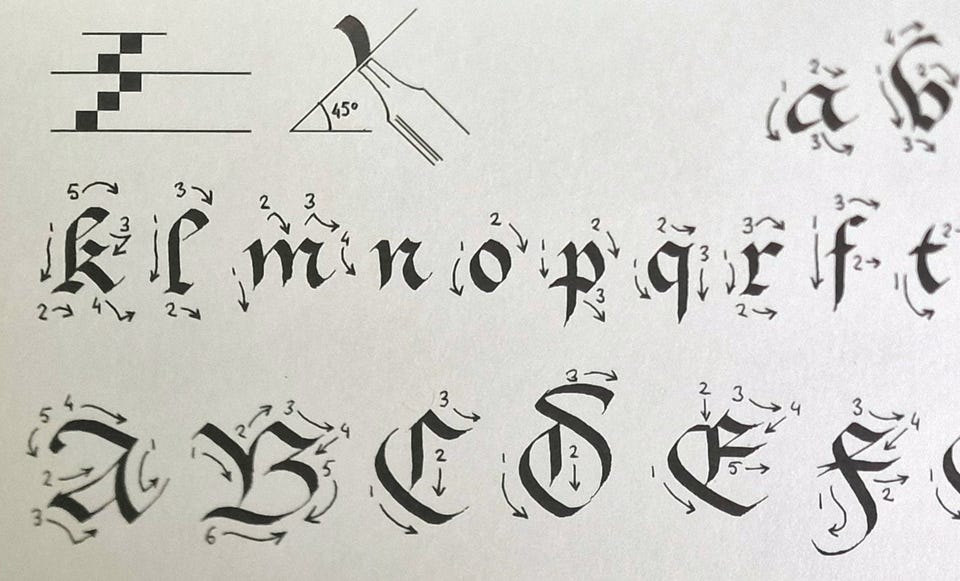 45°
a b
k l m n o p q r ſ t
A B C D E F